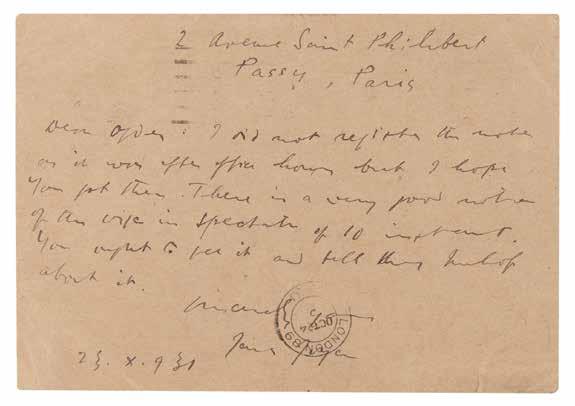 2 Avenue Saint Philibert
Passy, Paris
Dear Ogden: I did not register the notes
as it was after office hours but I hope
you got them. There is a very good notice
of the disc in Spectator of 10 instant.
You ought to get it and tell
about it.
Sincerely yours
James Joyce
23.X.931
LONDON
OCT 24